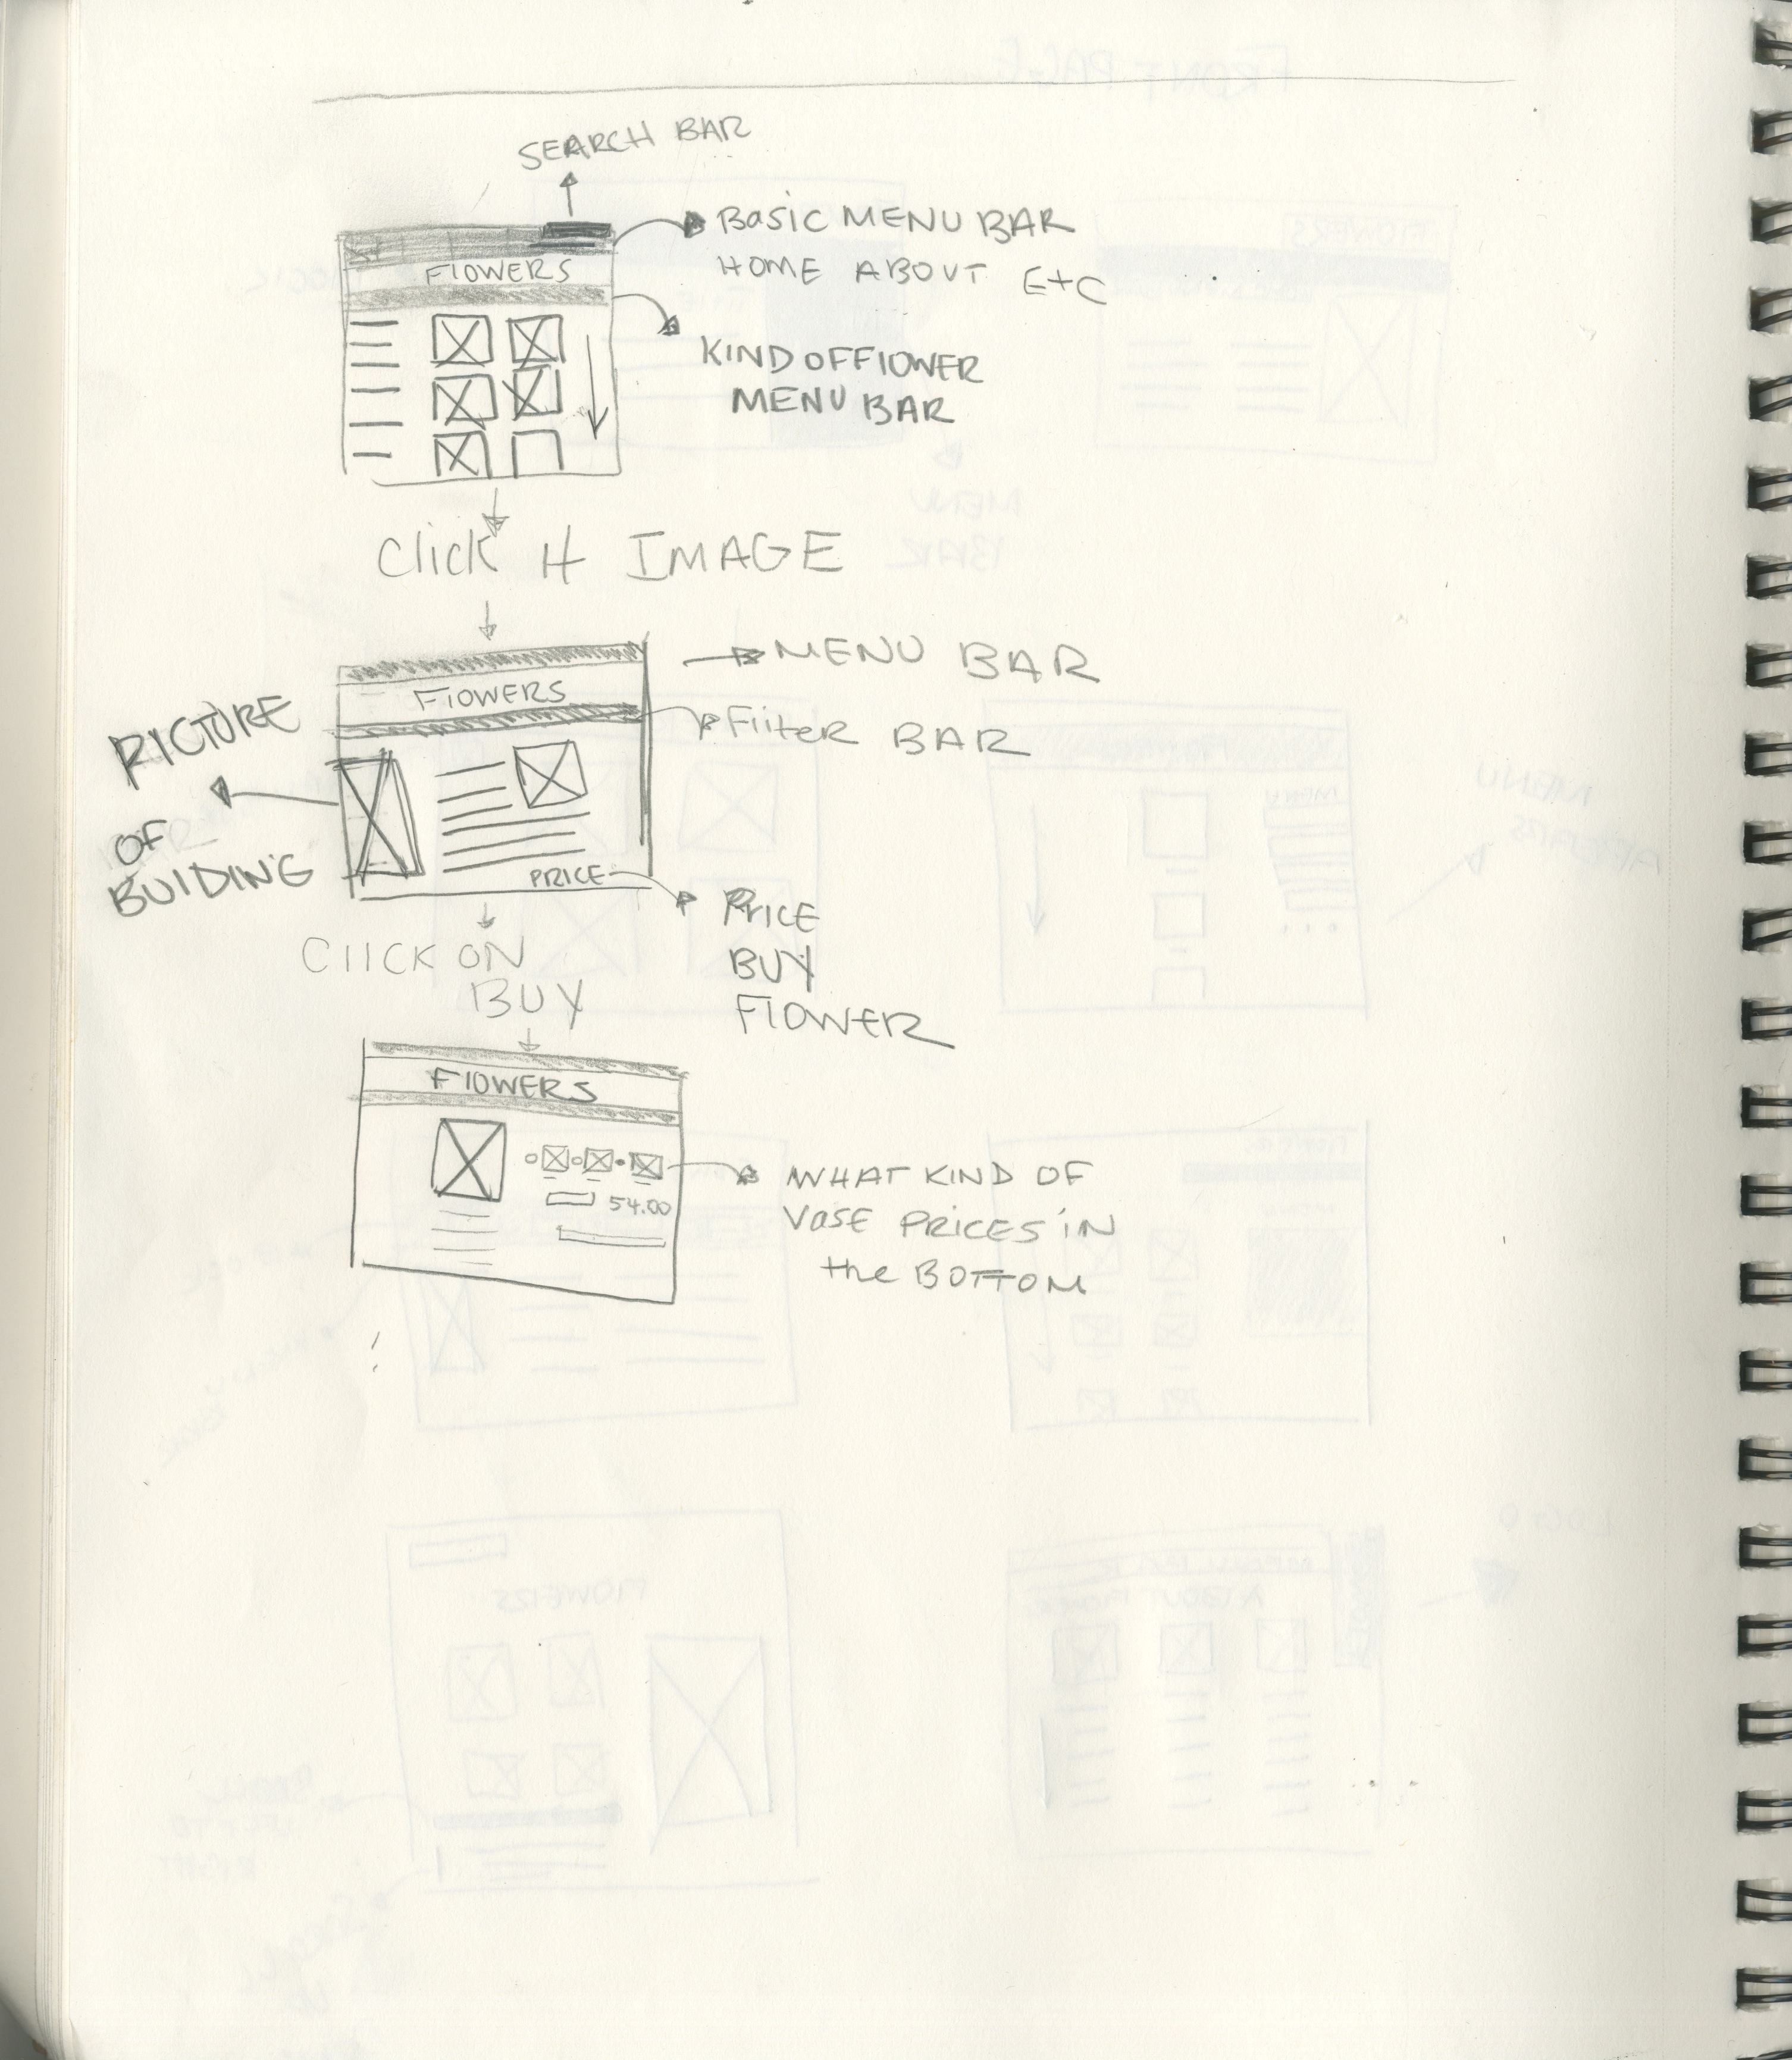 SEARCH BAR
BASIC MENU BAR
HOME ABOUT EtC
FlOWERS
KIND OF FlOWER
MENU BAR
Click IMAGE
MENU BAR
FlOWERS
FilteR BAR
PICTURE
OF
BUIlDING
PRICE
PRICE
BUY
FlOWER
ClICK ON
BUY
FlOWERS
54.00
WHAT KIND OF
VaSE PRICES iN
the BOTTOM